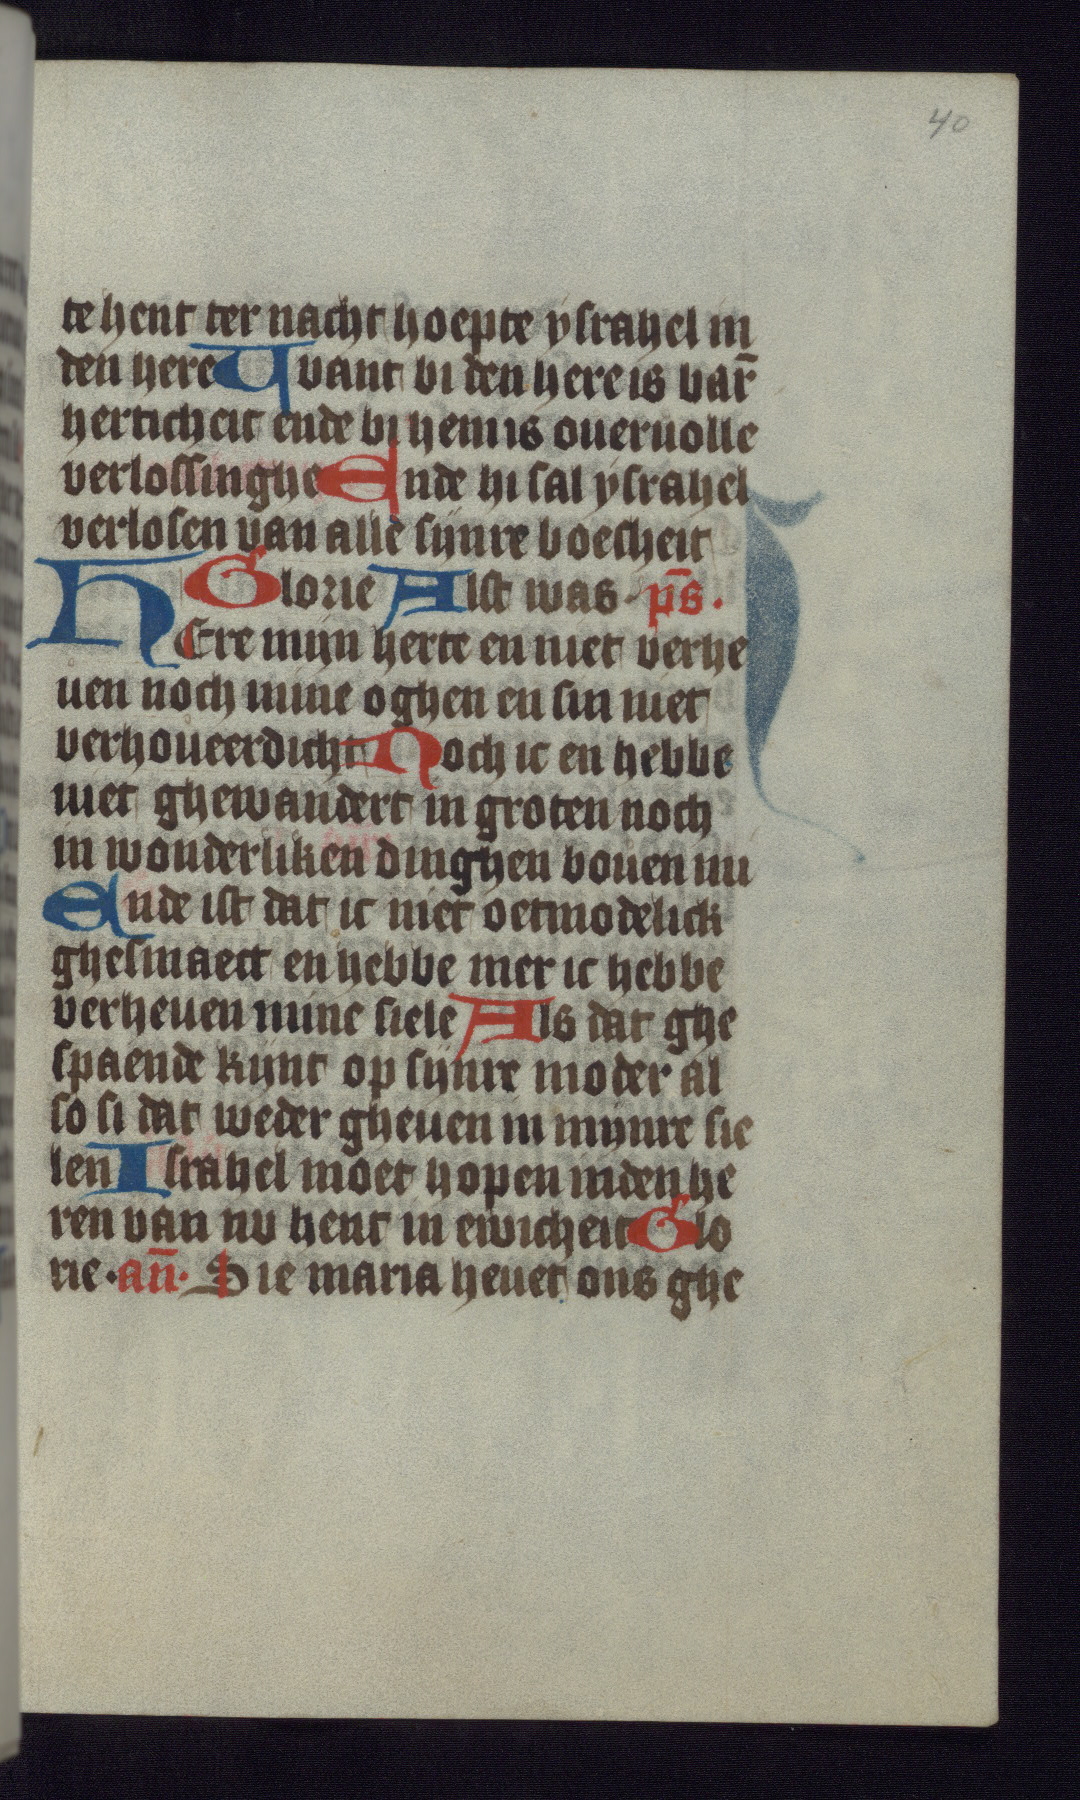 40
te hent ter nacht hoepte ysrahel in
den here Want bi den here is bar̄
herticheit ende bi hem is ouervolle
verlossinghe Ende hi sal ysrahel
verlosen van alle sijnre boesheit
Glorie Alst was. ps̄.
HEre mijn herte en niet verhe
uen noch mine oghen en sin niet
verhoueerdicht Noch ic en hebbe
niet ghewandert in groten noch
in wonderliken dinghen bouen mi
Ende ist dat ic niet oetmodelick
ghesmaect en hebbe mer ic hebbe
verheuen mine siele Als dat ghe
spaende kijnt op sijnre moder al
so si dat weder gheuen in mijnre sie
len Israhel moet hopen in den he
ren van nv hent in ewicheit Glo
rie. an̄. Die maria heuet ons ghe